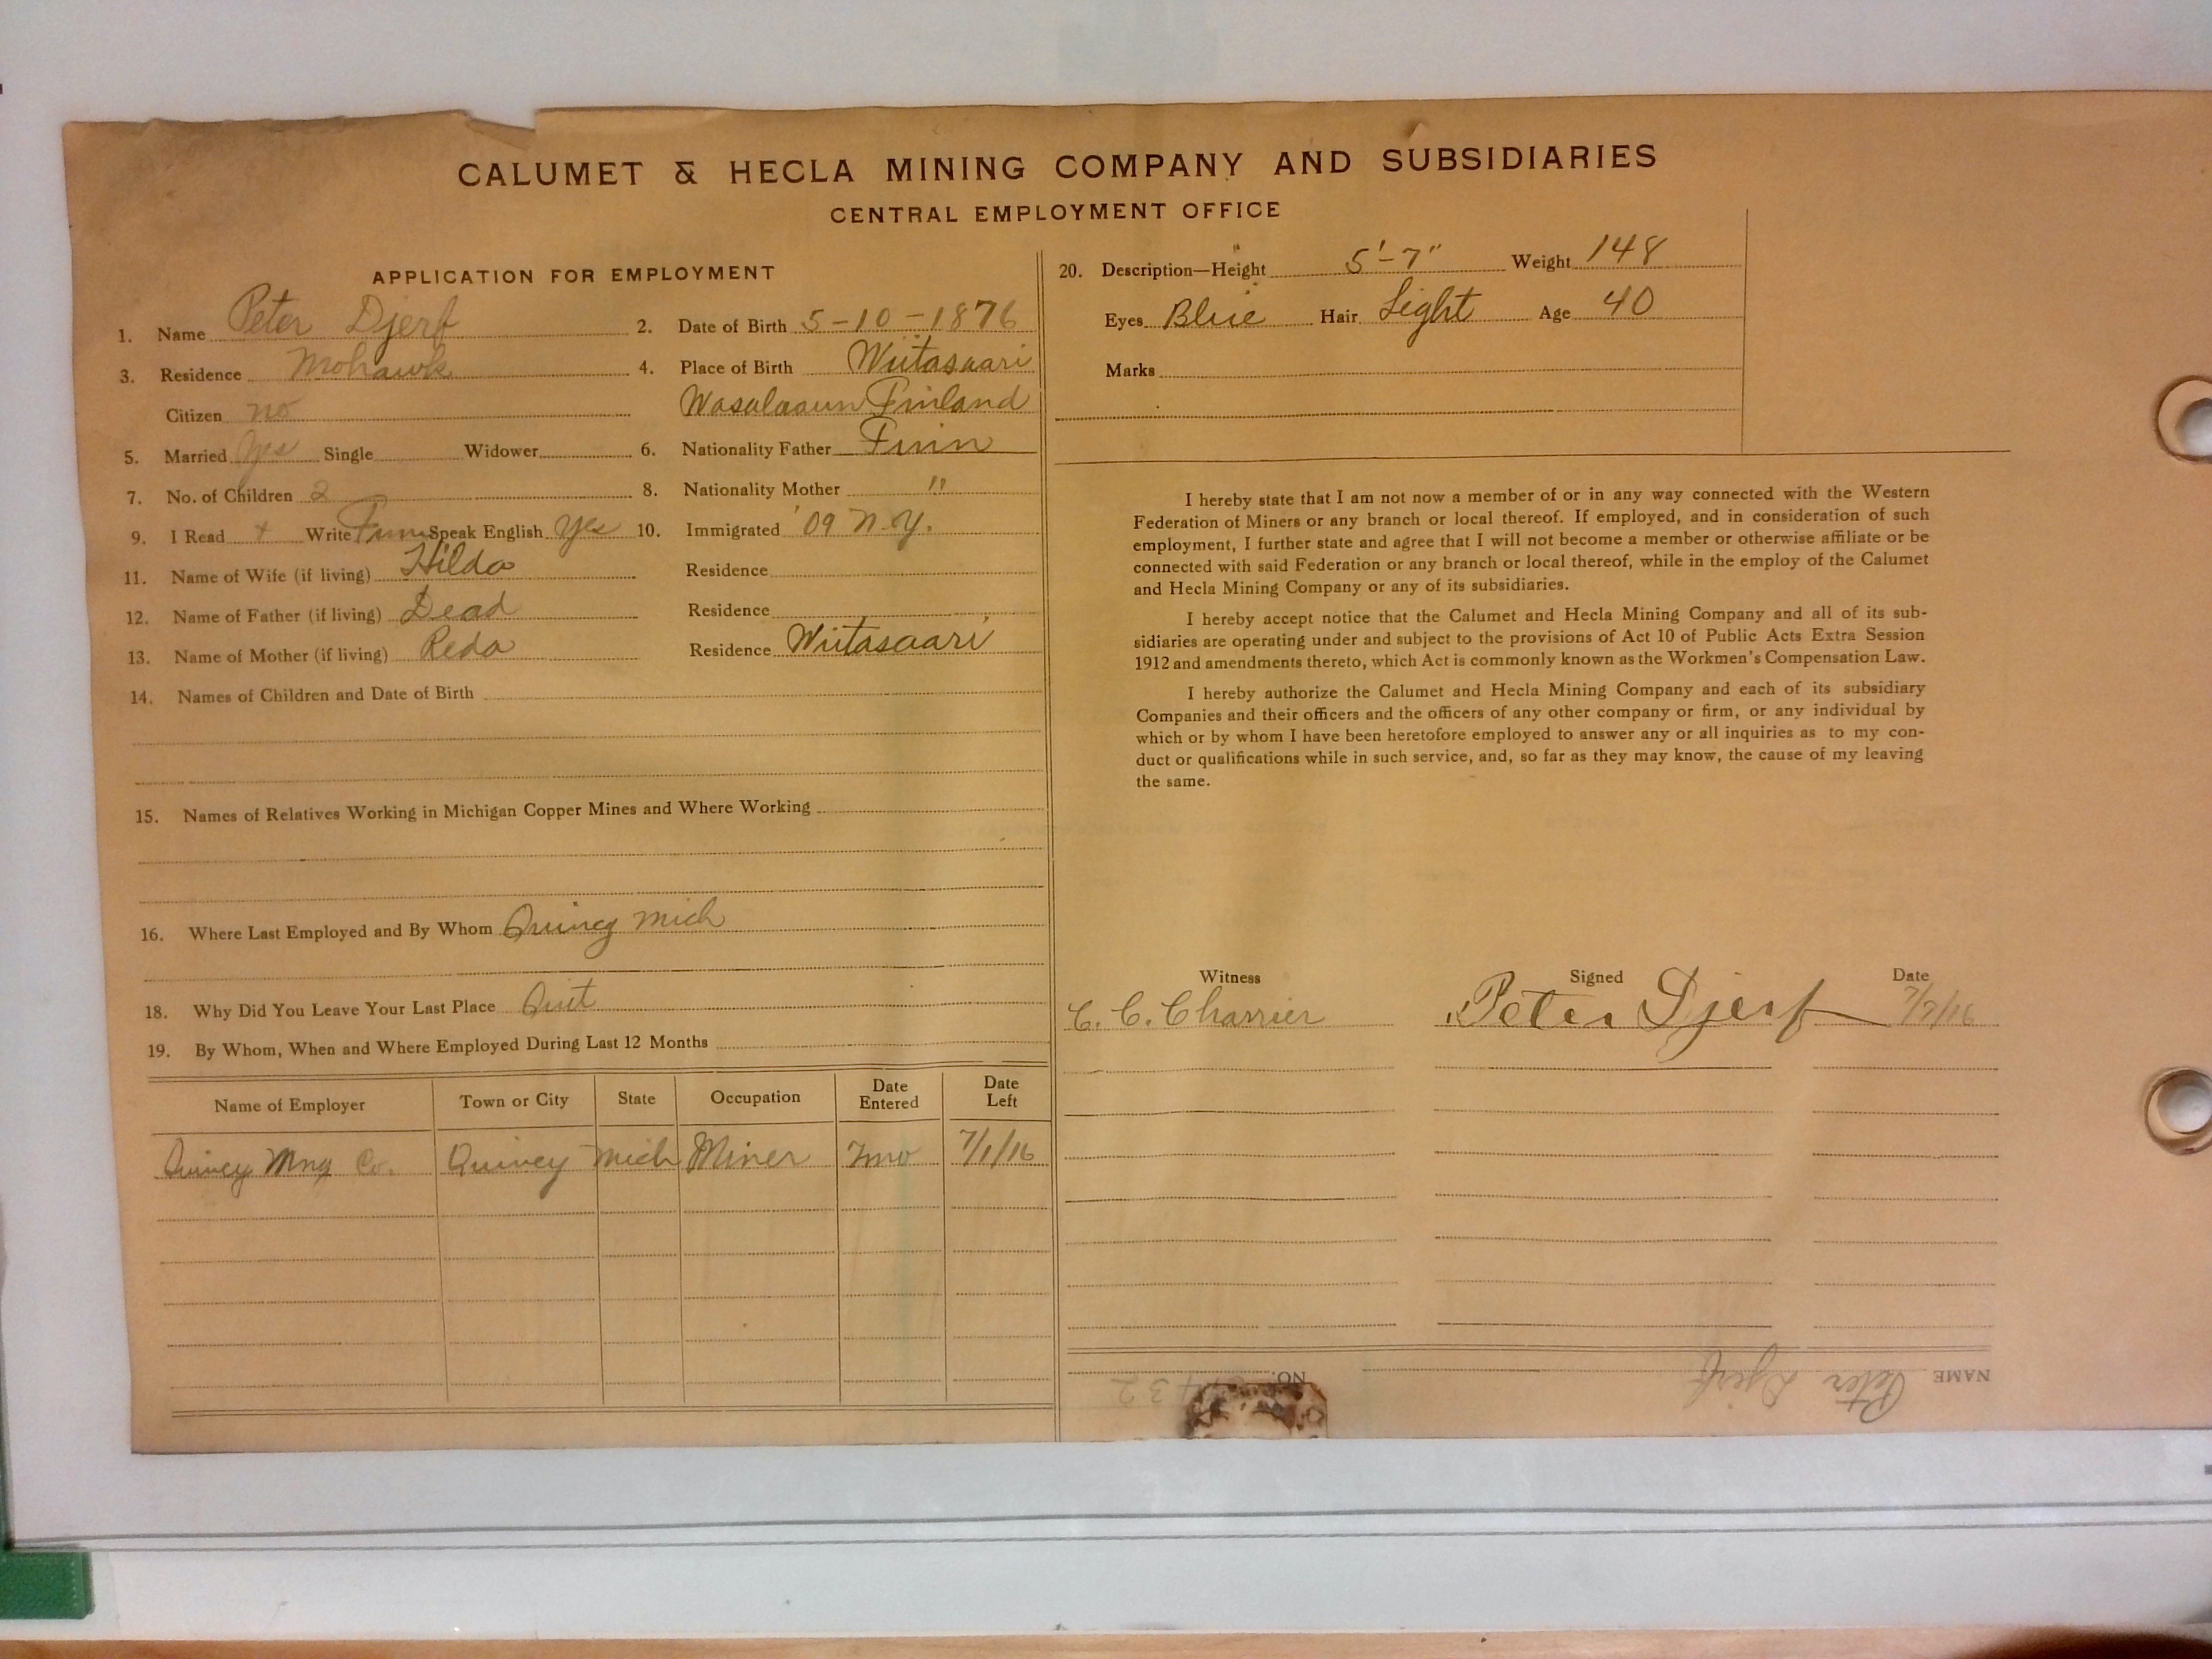 CALUMET & HECLA MINING COMPANY AND SUBSIDIARIES
CENTRAL EMPLOYMENT OFFICE
APPLICATION FOR EMPLOYMENT
1. Name Peter Djerf 2. Date of Birth 5-10-1876
3. Residence Mohawk 4. Place of Birth Wiitasaari
Citizen no Wasalaaun Finland
5. Married yes Single Widower 6. Nationality Father Finn
7. No. of Children 2 8. Nationality Mother "
9. I Read + Write Finn Speak English yes 10. Immigrated '09 N.Y.
11. Name of Wife (if living) Hilda Residence
12. Name of Father (if living) Dead Residence
13. Name of Mother (if living) Reda Residence Wiitasaari
14. Names of Children and Date of Birth
15. Names of Relatives Working in Michigan Copper Mines and Where Working
16. Where Last Employed and By Whom Quincy Mich
18. Why Did You Leave Your Last Place Quit
19. By Whom, When and Where Employed During Last 12 Months
Name of Employer Town or City State Occupation Date Entered Date Left
Quincy Mng Co. Quincy Mich Miner 7mo 7/1/16
20. Description—Height 5'-7" Weight 148
Eyes Blue Hair Light Age 40
Marks
I hereby state that I am not now a member of or in any way connected with the Western
Federation of Miners or any branch or local thereof. If employed, and in consideration of such
employment, I further state and agree that I will not become a member or otherwise affiliate or be
connected with said Federation or any branch or local thereof, while in the employ of the Calumet
and Hecla Mining Company or any of its subsidiaries.
I hereby accept notice that the Calumet and Hecla Mining Company and all of its sub-
sidiaries are operating under and subject to the provisions of Act 10 of Public Acts Extra Session
1912 and amendments thereto, which Act is commonly known as the Workmen's Compensation Law.
I hereby authorize the Calumet and Hecla Mining Company and each of its subsidiary
Companies and their officers and the officers of any other company or firm, or any individual by
which or by whom I have been heretofore employed to answer any or all inquiries as to my con-
duct or qualifications while in such service, and, so far as they may know, the cause of my leaving
the same.
Witness Signed Date
C. C. Charrier Peter Djerf 7/7/16
NAME Peter Djerf NO.